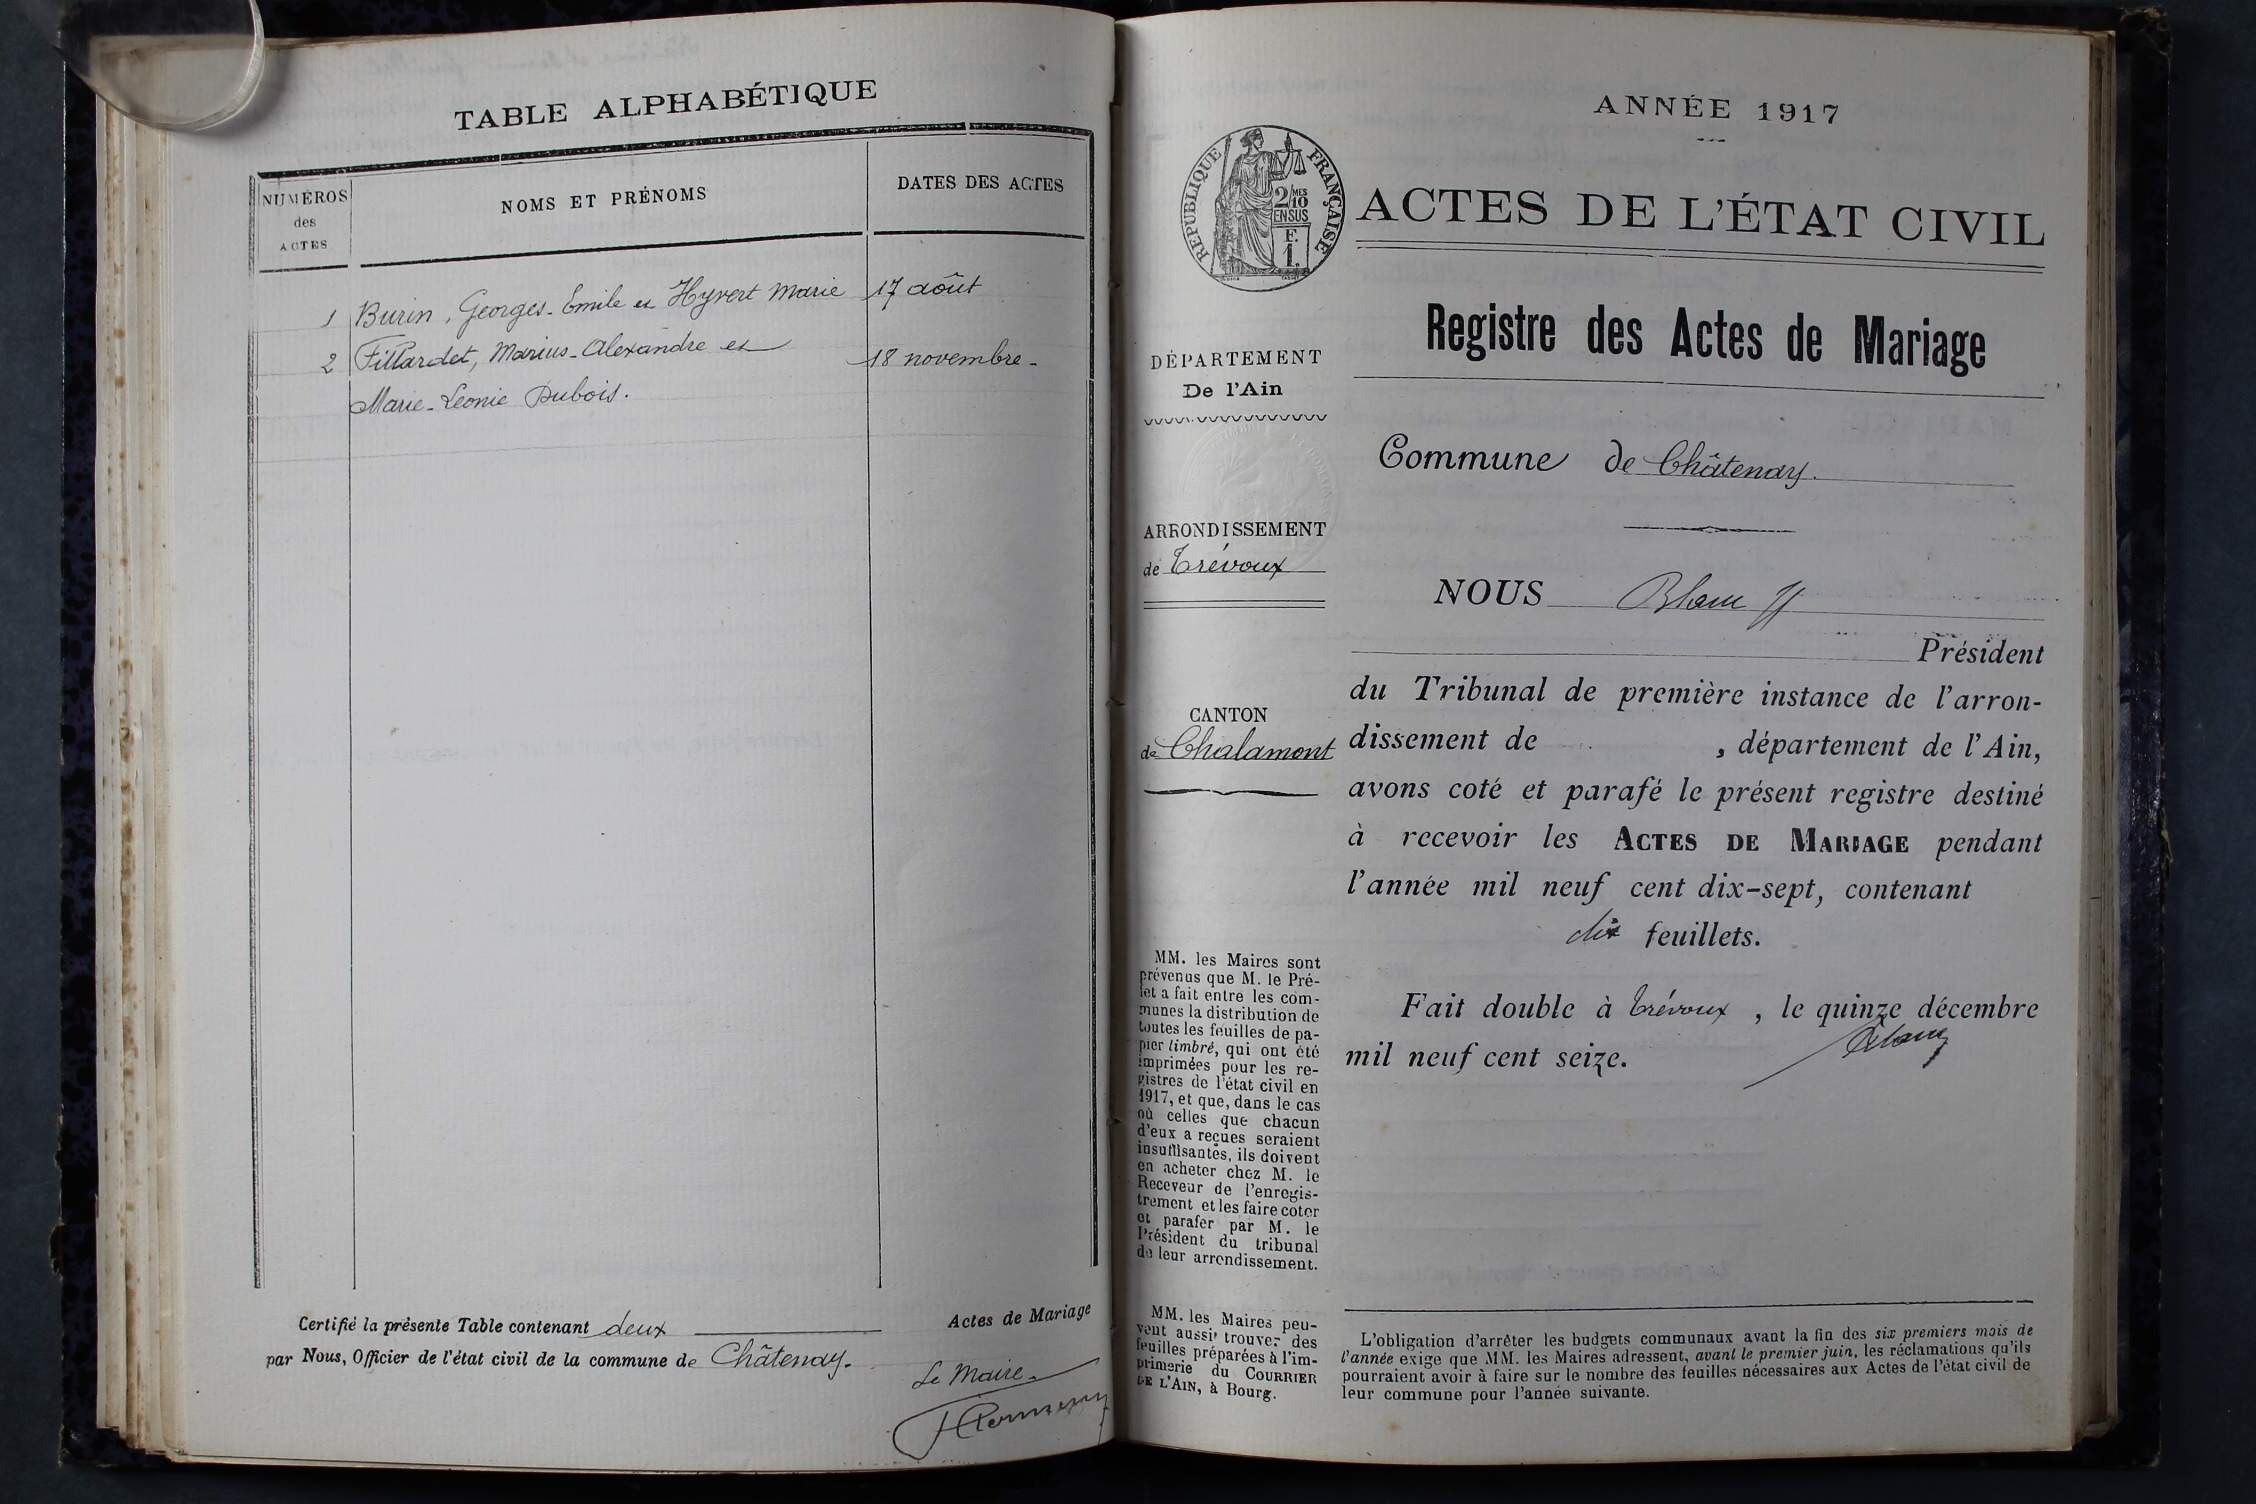 TABLE ALPHABÉTIQUE
NUMÉROS
des
ACTES
NOMS ET PRÉNOMS
DATES DES ACTES
1 Burin, Georges-Emile et Hyvert Marie 17 août
2 Fillardet, Marius-Alexandre et 18 novembre-
Marie-Leonie Dubois.
Certifié la présente Table contenant deux Actes de Mariage
par Nous, Officier de l'état civil de la commune de Châtenay.
Le Maire
ANNÉE 1917
RÉPUBLIQUE FRANÇAISE
2/10 MES
EN SUS
F.
1.
ACTES DE L'ÉTAT CIVIL
Registre des Actes de Mariage
DÉPARTEMENT
De l'Ain
ARRONDISSEMENT
de Trévoux
CANTON
de Chalamont
MM. les Maires sont
prévenus que M. le Pré-
fet a fait entre les com-
munes la distribution de
toutes les feuilles de pa-
pier timbré, qui ont été
imprimées pour les re-
gistres de l'état civil en
1917, et que, dans le cas
où celles que chacun
d'eux a reçues seraient
insuffisantes, ils doivent
en acheter chez M. le
Receveur de l'enregis-
trement et les faire coter
et parafer par M. le
Président du tribunal
de leur arrondissement.
MM. les Maires peu-
vent aussi trouver des
feuilles préparées à l'im-
primerie du COURRIER
DE L'AIN, à Bourg.
Commune de Châtenay.
NOUS Blanc
Président
du Tribunal de première instance de l'arron-
dissement de , département de l'Ain,
avons coté et parafé le présent registre destiné
à recevoir les ACTES DE MARIAGE pendant
l'année mil neuf cent dix-sept, contenant
dix feuillets.
Fait double à Trévoux, le quinze décembre
mil neuf cent seize.
Blanc
L'obligation d'arrêter les budgets communaux avant la fin des six premiers mois de
l'année exige que MM. les Maires adressent, avant le premier juin, les réclamations qu'ils
pourraient avoir à faire sur le nombre des feuilles nécessaires aux Actes de l'état civil de
leur commune pour l'année suivante.